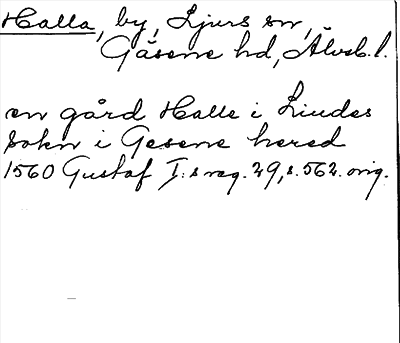 Halla, by, Ljurs sn,
Gäsene hd, Älvsb. l.
en gård Halle i Liudes
Sokn i Gesene hered
1560 Gustaf I:s reg. 29, s. 562. orig.